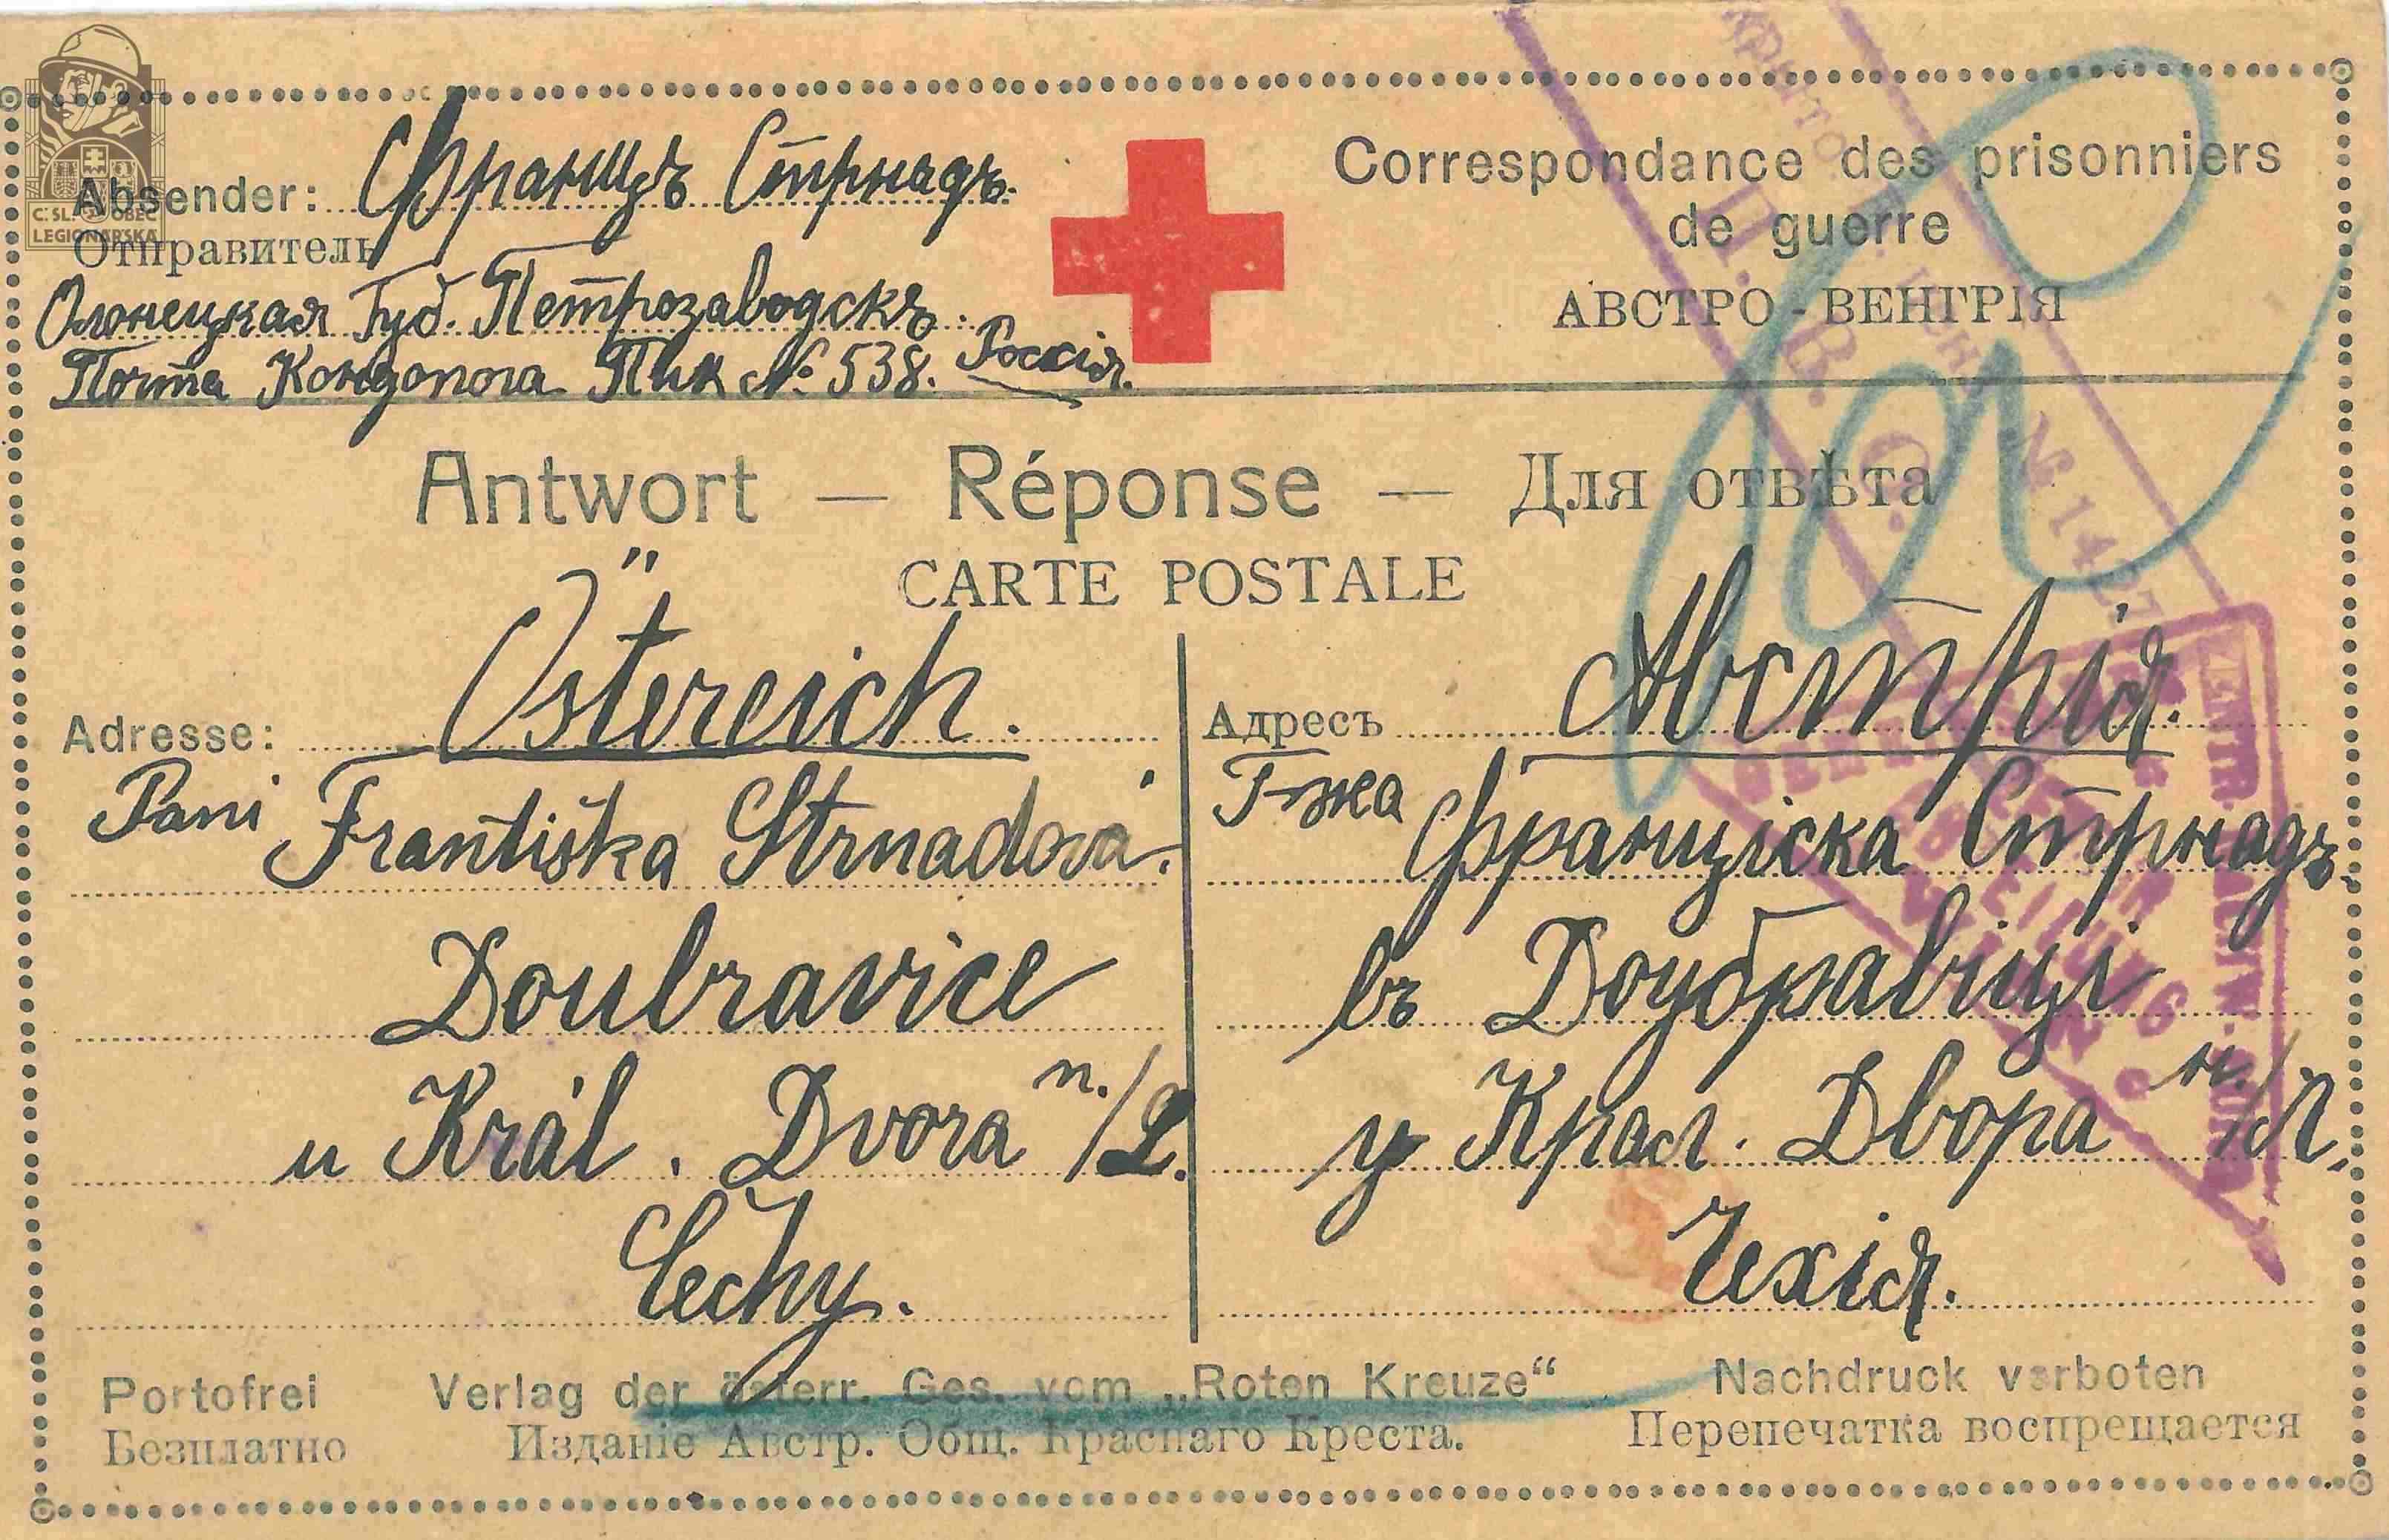 Č.SL. OBEC
LEGIONÁŘSKÁ
Absender: Францъ Стрнадъ.
Отправитель
Олонецкая Губ. Петрозаводскъ.
Почта Кондопога Пик № 538. Россія.
Correspondance des prisonniers
de guerre
АВСТРО-ВЕНГРІЯ
Antwort — Réponse — Для отвѣта
CARTE POSTALE
Adresse: Östereich.
Paní Františka Strnadová.
Doubravice
u Král. Dvora n./L.
Čechy.
Адресъ Австрія.
Г-жа Францiска Стрнадъ.
въ Доубравiцi
у Крал. Двора н./Л.
Чехія.
П. В. С.
№ 1427
Portofrei Verlag der österr. Ges. vom „Roten Kreuze“ Nachdruck verboten
Безплатно Изданіе Австр. Общ. Краснаго Креста. Перепечатка воспрещается